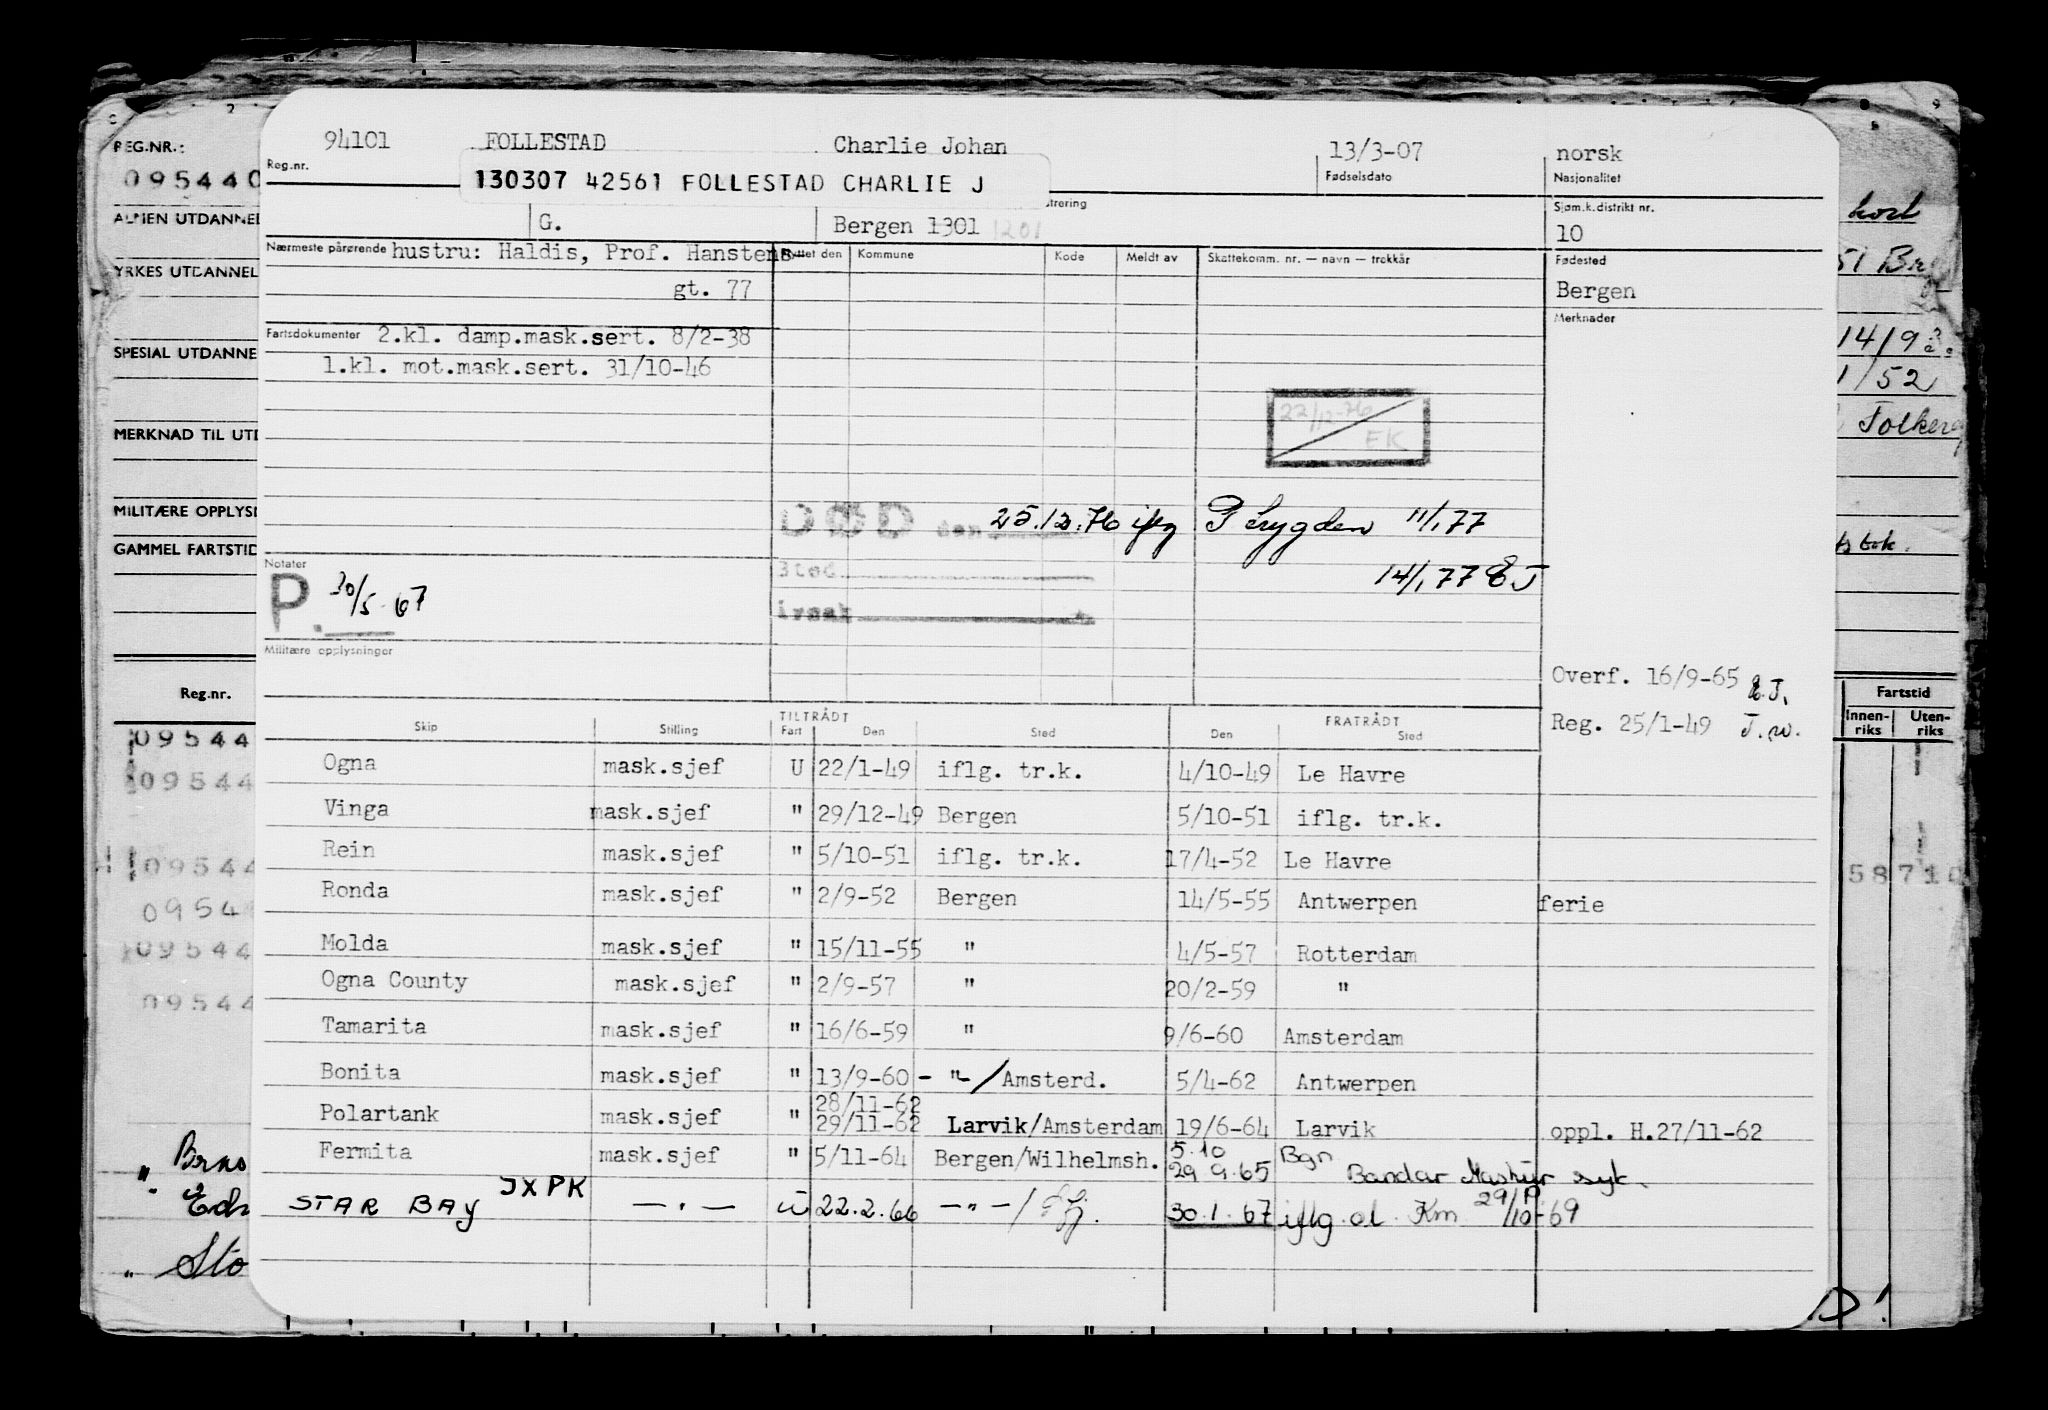 94101 FOLLESTAD Charlie Johan 13/3-07 norsk
Reg.nr. Fødselsdato Nasjonalitet
130307 42561 FOLLESTAD CHARLIE J
trering Sjøm.k.distrikt nr.
G. Bergen 1301 1201 10
Nærmeste pårørende hustru: Haldis, Prof. Hanstens
gt. 77
Flyttet den Kommune Kode Meldt av Skattekomm. nr. — navn — trekkår Fødested
Bergen
Merknader
Fartsdokumenter 2.kl. damp.mask.sert. 8/2-38
1.kl. mot.mask.sert. 31/10-46
22/12-76
EK
DØD den 25.12.76 iflg P Trygden 11/1 77
Sted 14/1 77 E J
årsak
Notater
P. 30/5-67
Militære opplysninger
Overf. 16/9-65 E.J.
Reg. 25/1-49 J.w.
TILTRÅDT FRATRÅDT
Skip Stilling Fart Den Sted Den Sted
Ogna mask.sjef U 22/1-49 iflg. tr.k. 4/10-49 Le Havre
Vinga mask.sjef " 29/12-49 Bergen 5/10-51 iflg. tr.k.
Rein mask.sjef " 5/10-51 iflg. tr.k. 17/4-52 Le Havre
Ronda mask.sjef " 2/9-52 Bergen 14/5-55 Antwerpen ferie
Molda mask.sjef " 15/11-55 " 4/5-57 Rotterdam
Ogna County mask.sjef " 2/9-57 " 20/2-59 "
Tamarita mask.sjef " 16/6-59 " 9/6-60 Amsterdam
Bonita mask.sjef " 13/9-60 - " - /Amsterd. 5/4-62 Antwerpen
28/11-62
Polartank mask.sjef " 29/11-62 Larvik/Amsterdam 19/6-64 Larvik oppl. H.27/11-62
Fermita mask.sjef " 5/11-64 Bergen/Wilhelmsh. 5.10 Bgn
29.9.65 Bandar Mashur syk.
STAR BAY JXPK — " — U 22.2.66 — " — / 30.1.67 iflg. Km 29/10-69
REG.NR.:
095440
ALMEN UTDANNEL
YRKES UTDANNEL
SPESIAL UTDANNE
MERKNAD TIL UTD
MILITÆRE OPPLYS
GAMMEL FARTSTID
Reg.nr.
09544
09544
09544
0954
09544
09544
kort
51
14/9
1/52
Tolker
Fartstid
Innen-
riks
Uten-
riks
5871
Sto